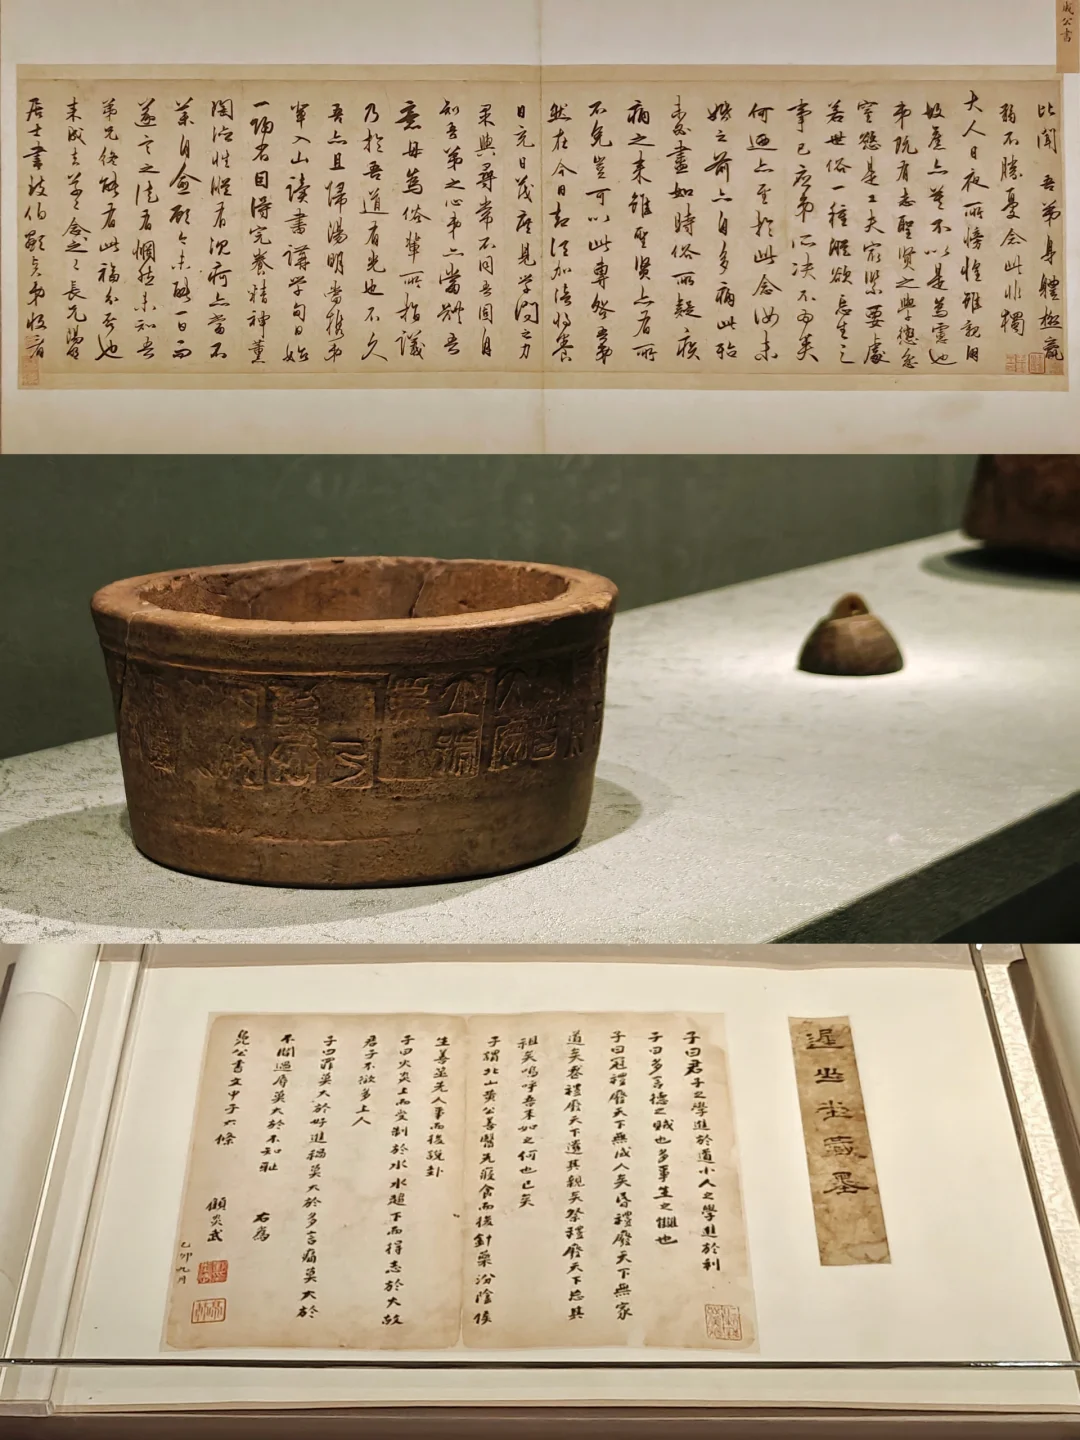 成公書
比聞吾弟身體極羸
弱不勝憂念此非獨
大人日夜所傍惶雖親朋
故舊亦莫不以是為慮也
弟既有志聖賢之學懲忿
窒慾是工夫最緊要處
若世俗一種縱欲忘生之
事已應弟所決不為矣
何迺亦至於此念汝未
婚之前亦自多病此殆
未必盡如時俗所疑疾
病之來雖聖賢亦有所
不免豈可以此專咎吾弟
然在今日卻須加倍將養
日充日茂庶見學問之力
果與尋常不同吾固自
知吾弟之心弟亦當體吾
意毋為俗輩所指議
乃於吾道有光也不久
吾亦且歸陽明當攜弟
輩入山讀書講學旬日始
一歸省因得完養精神薰
陶德性縱有沉痾亦當不
藥自愈顧今未能一日而
遂言之徒有惘然未知吾
弟兄終能有此福分否也
來成去草草念之〻長兄陽明
居士書致伯顯賢弟收看
子曰君子之學進於道小人之學進於利
子曰多言德之賊也多事生之讎也
子曰冠禮廢天下無成人矣昏禮廢天下無家
道矣喪禮廢天下遺其親矣祭禮廢天下忘其
祖矣嗚呼吾末如之何也已矣
子謂北山黃公善醫先寢食而後針藥汾陰侯
生善筮先人事而後說卦
子曰火炎上而受制於水水趨下而得志於火故
君子不欲多上人
子曰罪莫大於好進禍莫大於多言痛莫大於
不聞過辱莫大於不知恥
右為
公書文中子六條
顧炎武
己卯九月